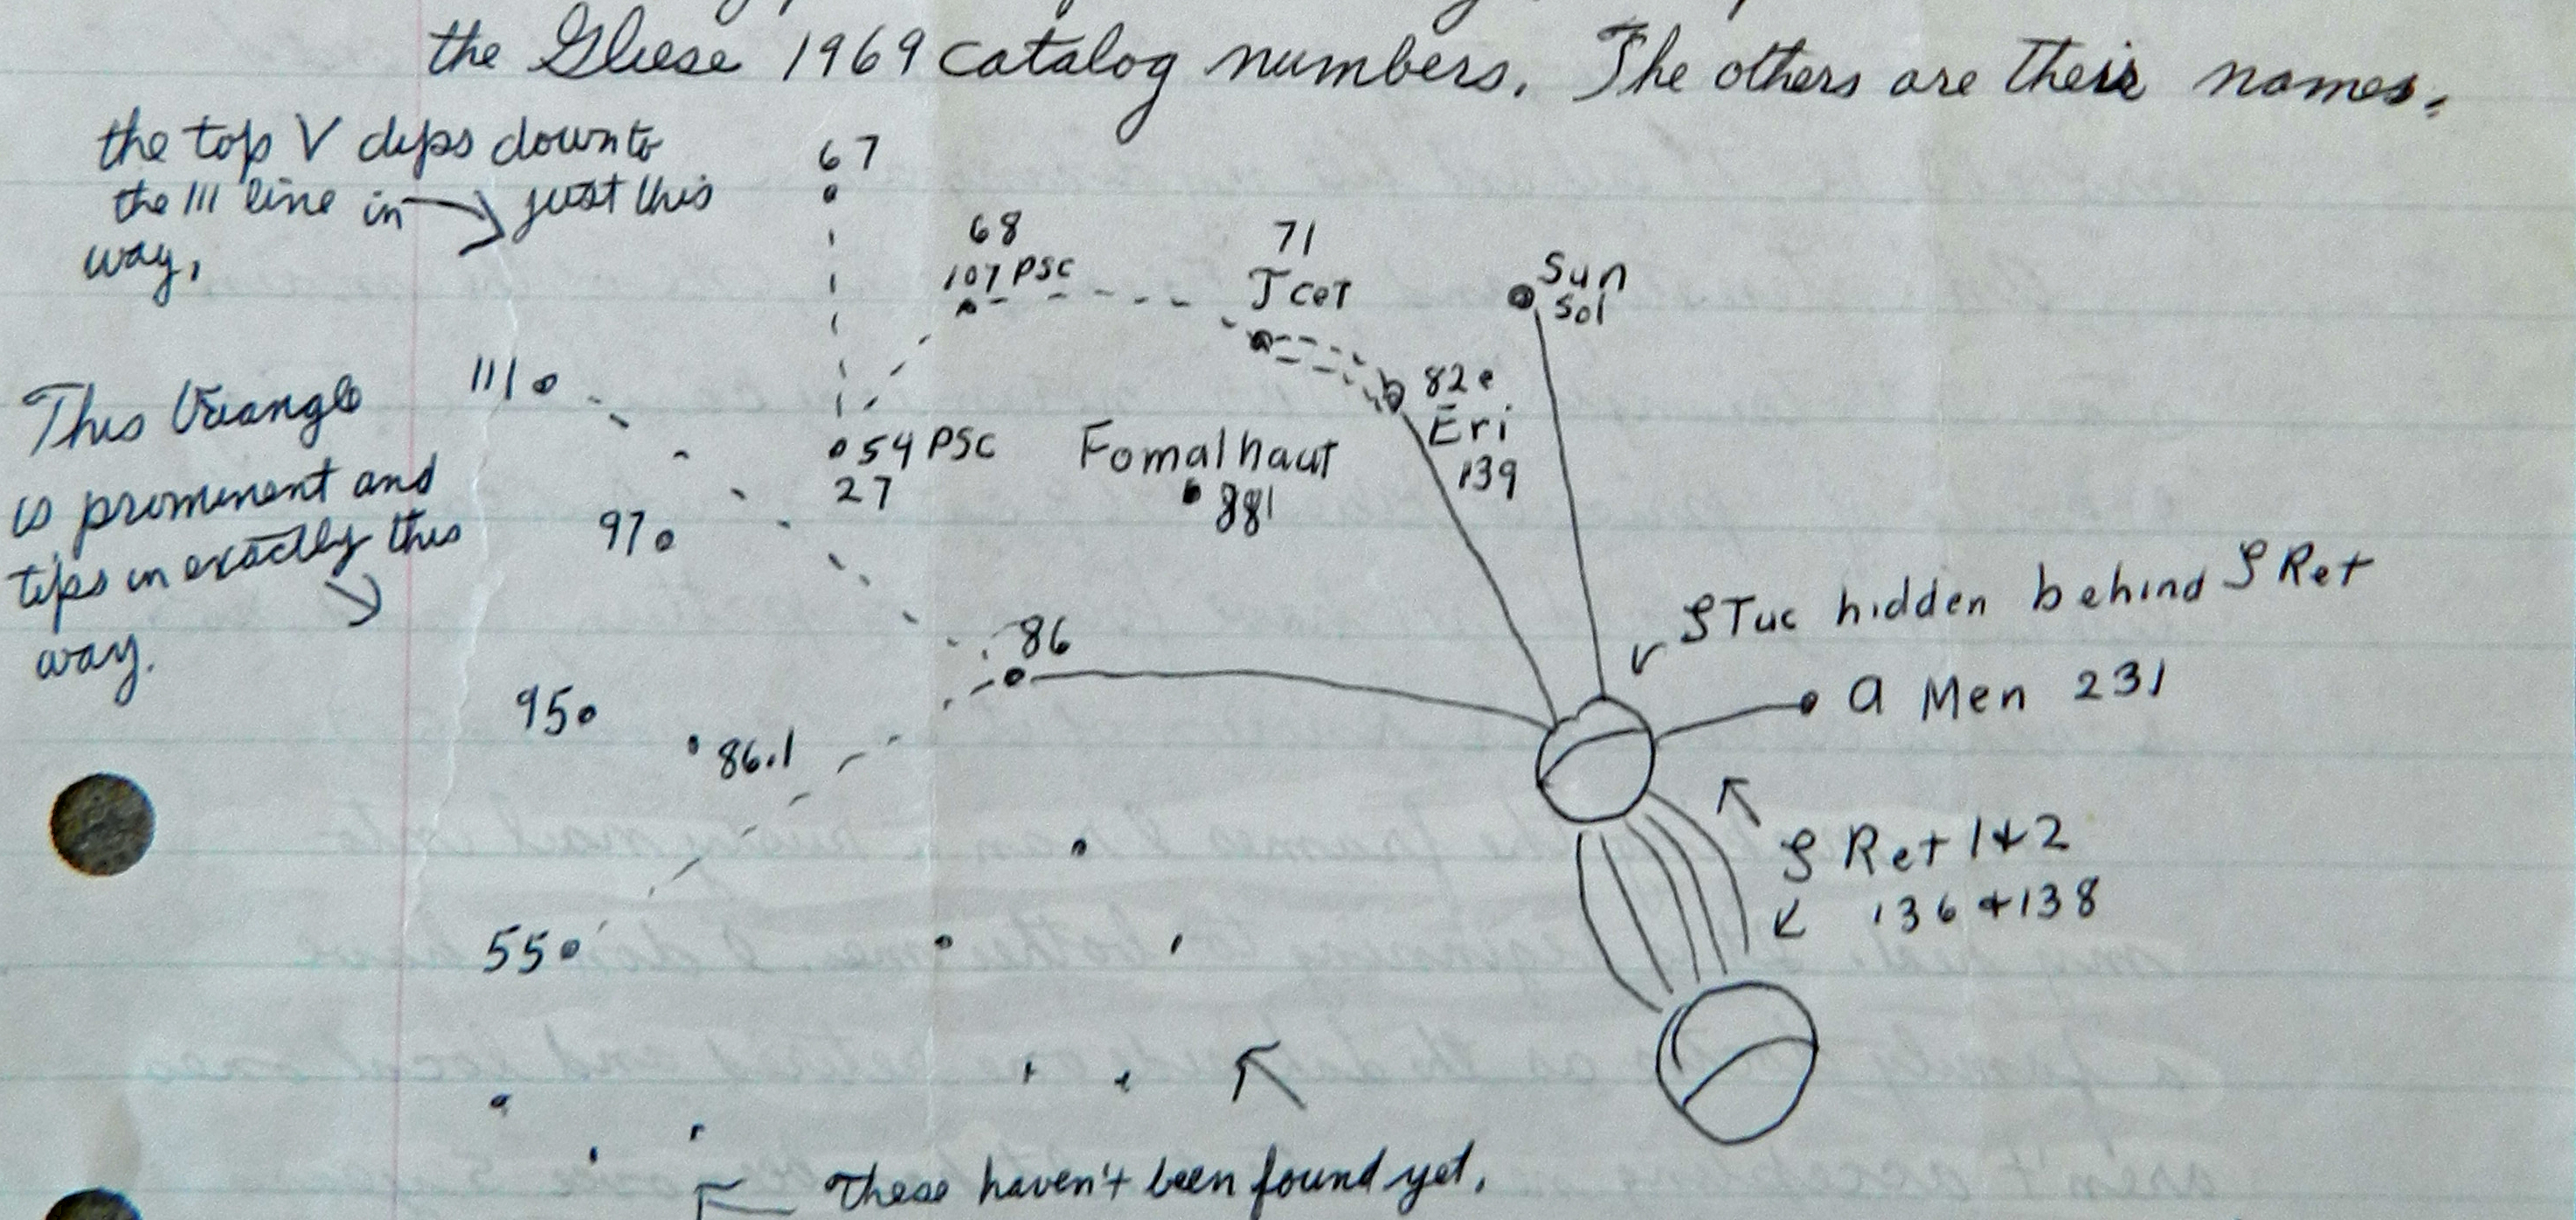 the Gliese 1969 catalog numbers. The others are their names.
the top V dips down to
the 111 line in just this
way.
67
68
107 PSC
71
T Cet
Sun
Sol
This triangle
is prominent and
tips in exactly this
way.
111
82 e
Eri
139
54 PSC
27
Fomalhaut
881
97
ζ Tuc hidden behind ζ Ret
86
α Men 231
95
86.1
ζ Ret 1 & 2
136 & 138
55
These haven't been found yet.